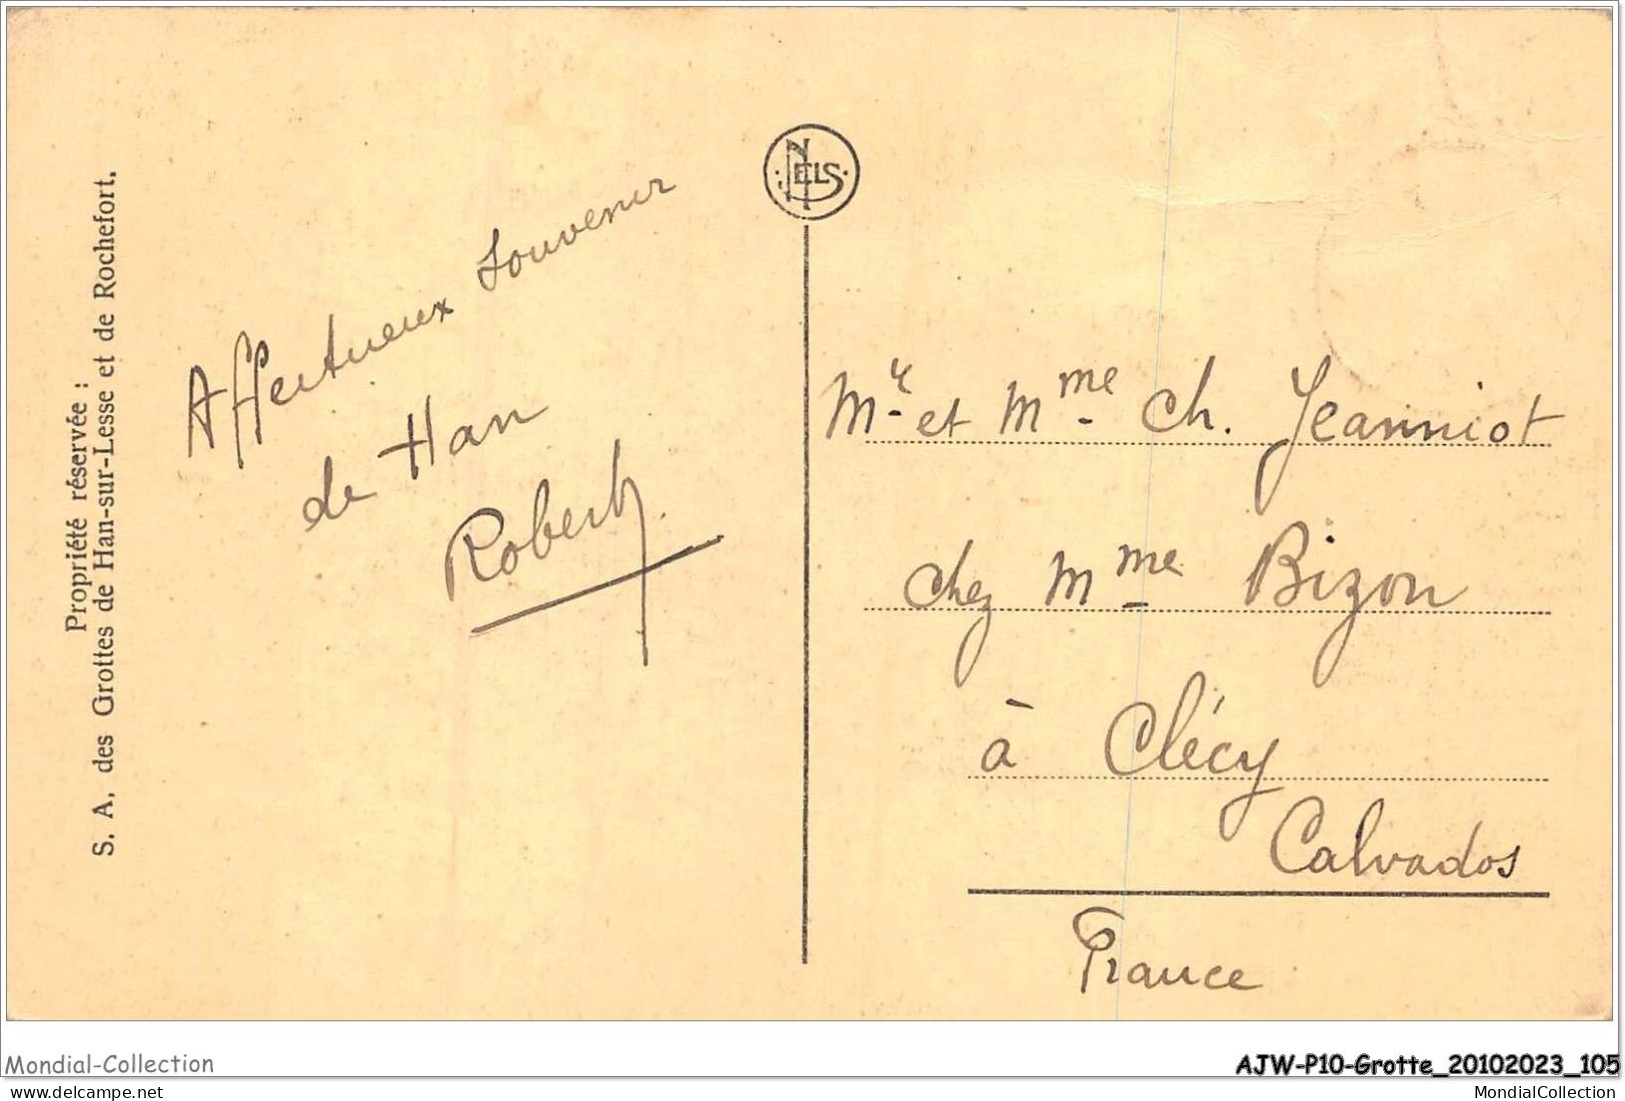 Propriété réservée :
S. A. des Grottes de Han-sur-Lesse et de Rochefort.
NELS
Affectueux Souvenir
de Han
Robert
Mr et Mme Ch. Jeanniot
chez Mme Bizon
à Clécy
Calvados
France
Mondial-Collection
AJW-P10-Grotte_20102023_105
delcampe.net
MondialCollection